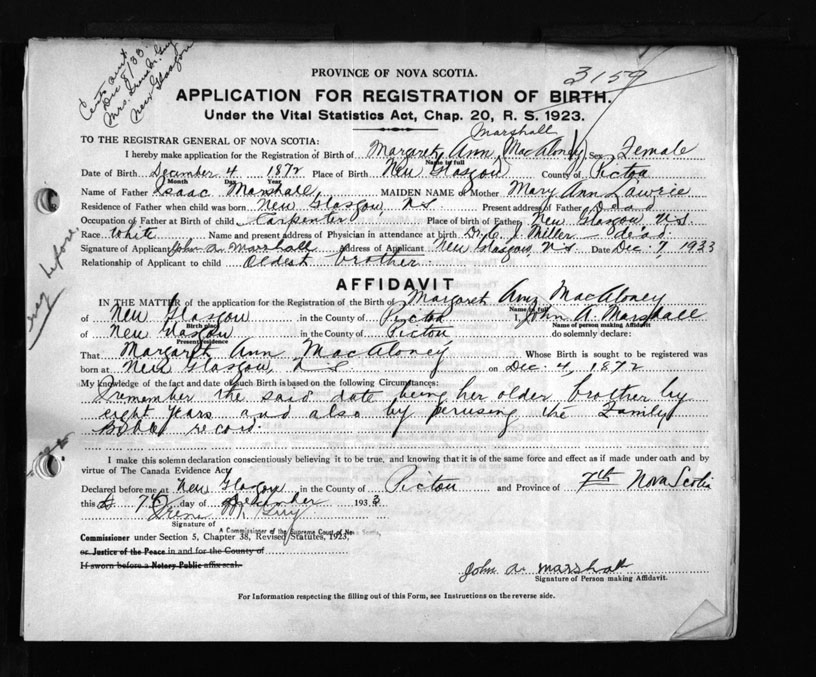 Cert. sent
Dec 8/33.
Mrs. Irene M. Guy
New Glasgow
3159
PROVINCE OF NOVA SCOTIA.
APPLICATION FOR REGISTRATION OF BIRTH.
Under the Vital Statistics Act, Chap. 20, R. S. 1923.
Marshall
TO THE REGISTRAR GENERAL OF NOVA SCOTIA:
I hereby make application for the Registration of Birth of Margaret Ann (MacAloney) Sex Female
Name in full
Date of Birth December 4 1872 Place of Birth New Glasgow County of Pictou
Month Day Year
Name of Father Isaac Marshall, MAIDEN NAME of Mother Mary Ann Lawrie
Residence of Father when child was born New Glasgow, N.S. Present address of Father Dead
Occupation of Father at Birth of child Carpenter Place of birth of Father New Glasgow, N.S.
Race White Name and present address of Physician in attendance at birth Dr. C. J. Miller - dead
Signature of Applicant John A. Marshall Address of Applicant New Glasgow, N.S. Date Dec. 7, 1933
Relationship of Applicant to child Oldest brother.
AFFIDAVIT
IN THE MATTER of the application for the Registration of the Birth of Margaret Ann MacAloney
Name in full
of New Glasgow in the County of Pictou I, John A. Marshall
Birth place Name of person making Affidavit
of New Glasgow in the County of Pictou, do solemnly declare:
Present residence
That Margaret Ann MacAloney Whose Birth is sought to be registered was
born at New Glasgow, N.S. on Dec. 4, 1872
My knowledge of the fact and date of such Birth is based on the following Circumstances:
I remember the said date being her older brother by
eight years and also by perusing the Family
Bible record.
I make this solemn declaration conscientiously believing it to be true, and knowing that it is of the same force and effect as if made under oath and by
virtue of The Canada Evidence Act
Declared before me at New Glasgow in the County of Pictou and Province of Nova Scotia
7th
this 7th day of December 1933
Irene M. Guy
Signature of
A Commissioner of the Supreme Court of Nova Scotia,
Commissioner under Section 5, Chapter 38, Revised Statutes, 1923,
or Justice of the Peace in and for the County of
If sworn before a Notary Public affix seal.
John A. Marshall
Signature of Person making Affidavit.
For Information respecting the filling out of this Form, see Instructions on the reverse side.
before.